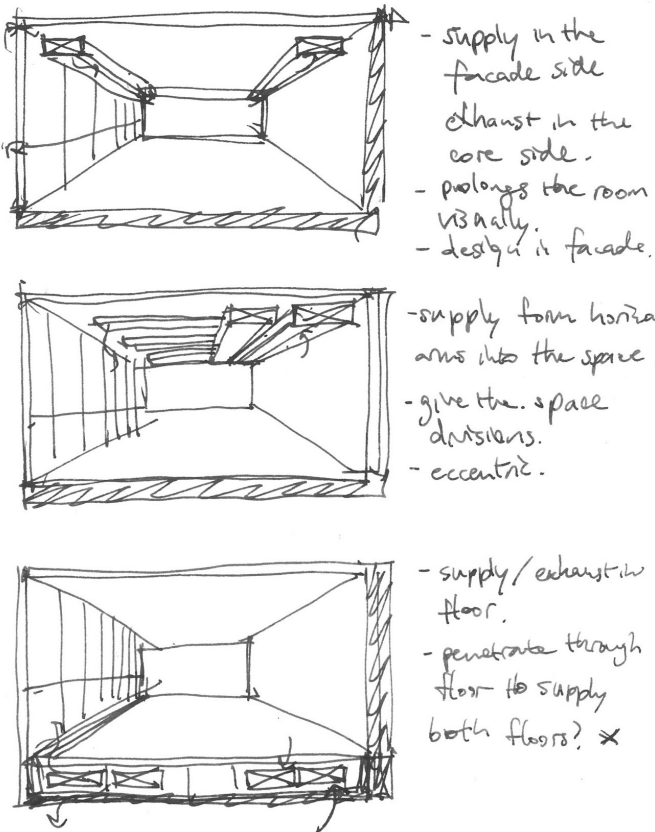 - supply in the
facade side
exhaust in the
core side.
- prolongs the room
visually.
- design in facade.
- supply from horizo
arms into the space
- give the space
divisions.
- eccentric.
- supply/exhaust in
floor.
- penetrate through
floor to supply
both floors? x